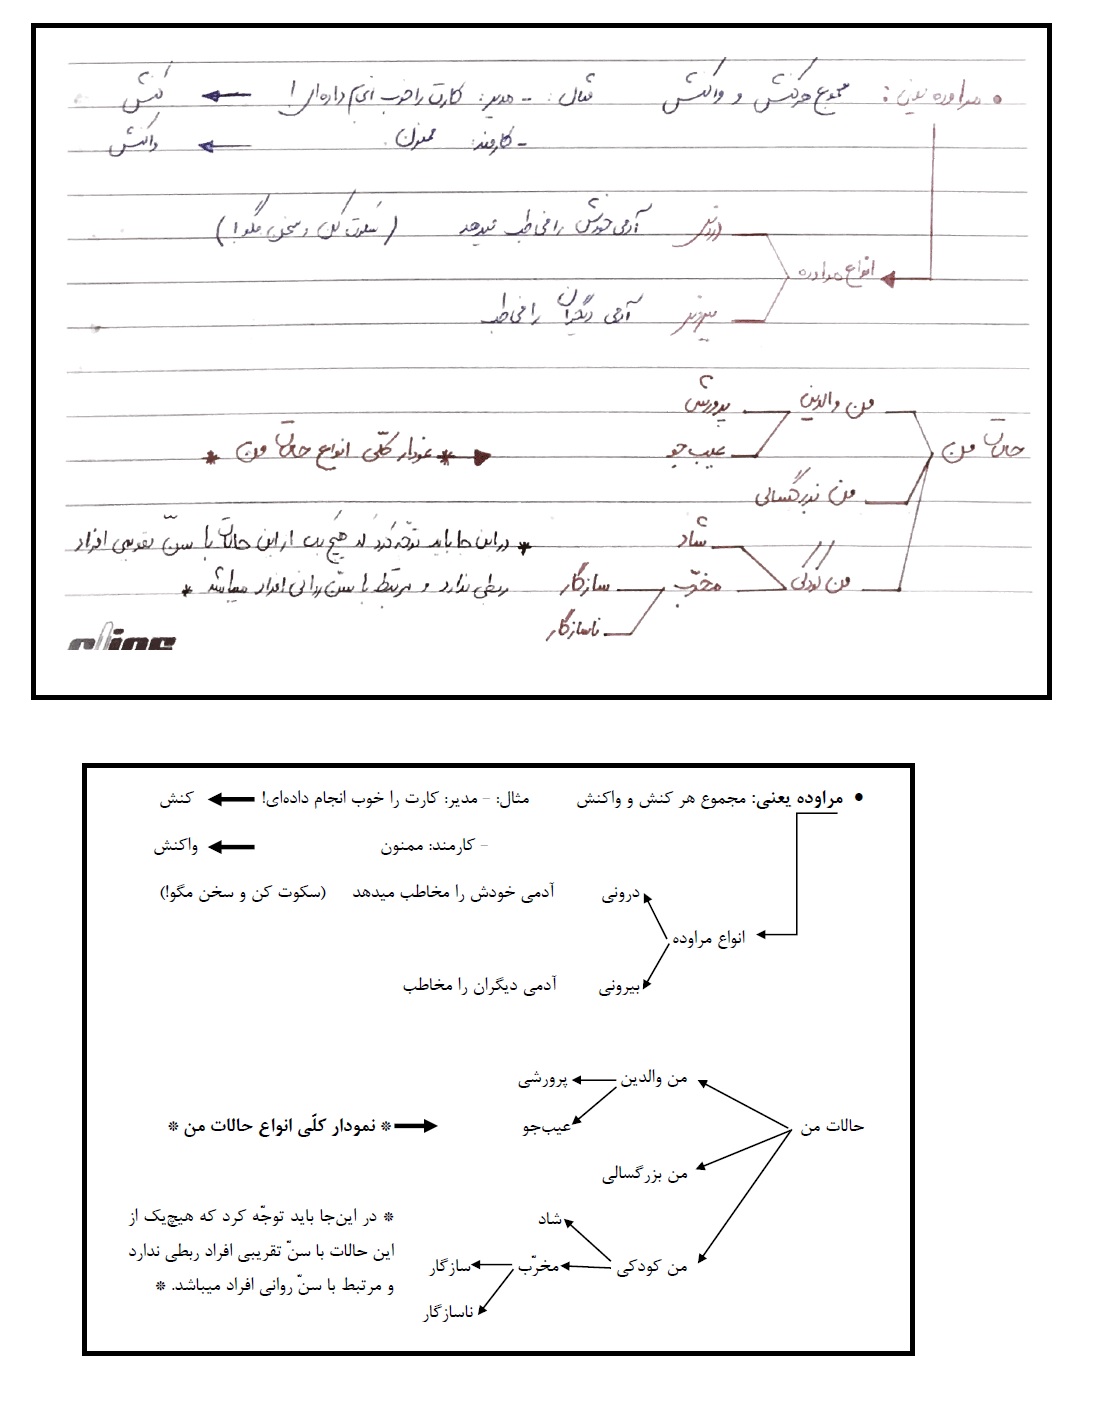 • مراوده یعنی: مجموع هر کنش و واکنش مثال: - مدیر: کارت را خوب انجام داده‌ای! ← کنش
- کارمند: ممنون. ← واکنش
درونی آدمی خودش را مخاطب میدهد (سکوت کن و سخن مگو!)
انواع مراوده
بیرونی آدمی دیگران را مخاطب
من والدین پرورشی
حالات من عیب‌جو * نمودار کلّی انواع حالات من *
من بزرگسالی
شاد * در این جا باید توجّه کرد که هیچ یک از این حالات با سنّ تقویمی افراد
من کودکی مخرّب سازگار ربطی ندارد و مرتبط با سنّ روانی افراد میباشد *
ناسازگار
• مراوده یعنی: مجموع هر کنش و واکنش مثال: - مدیر: کارت را خوب انجام داده‌ای! ← کنش
- کارمند: ممنون ← واکنش
درونی آدمی خودش را مخاطب میدهد (سکوت کن و سخن مگو!)
انواع مراوده
بیرونی آدمی دیگران را مخاطب
من والدین پرورشی
حالات من عیب‌جو * نمودار کلّی انواع حالات من *
من بزرگسالی
شاد * در این‌جا باید توجّه کرد که هیچ‌یک از
این حالات با سنّ تقریبی افراد ربطی ندارد
من کودکی مخرّب سازگار
و مرتبط با سنّ روانی افراد میباشد. *
ناسازگار